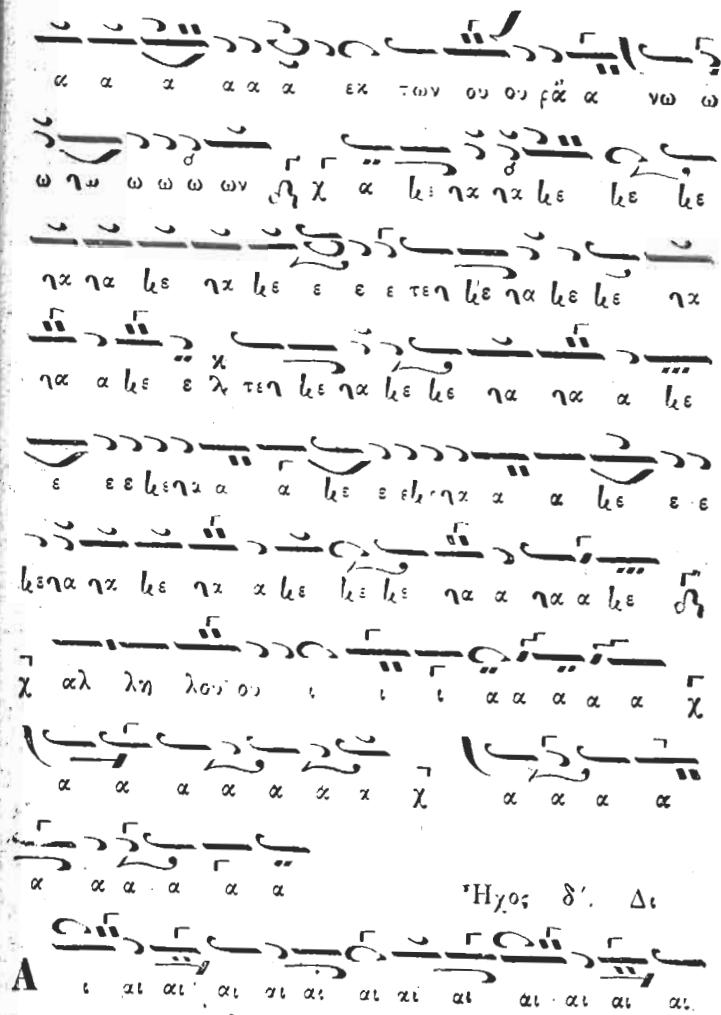 α α α α α α εκ των ου ου ρα α νω ω
ω ηω ω ω ω ων χ α κε ηα ηα κε κε κε
ηα ηα κε ηα κε ε ε ε τεη κε ηα κε κε ηα
ηα α κε ε τεη κε ηα κε κε ηα ηα α κε
ε ε ε κεηα α α κε ε εκεηα α α κε ε ε
κεηα ηα κε ηα α κε κε κε ηα α ηα α κε
χ αλ λη λου ου ι ι ι α α α α α χ
α α α α α α α χ α α α α
α α α α α α
Ἦχος δ΄. Δι
Α ι αι αι αι αι αι αι αι αι αι αι αι αι